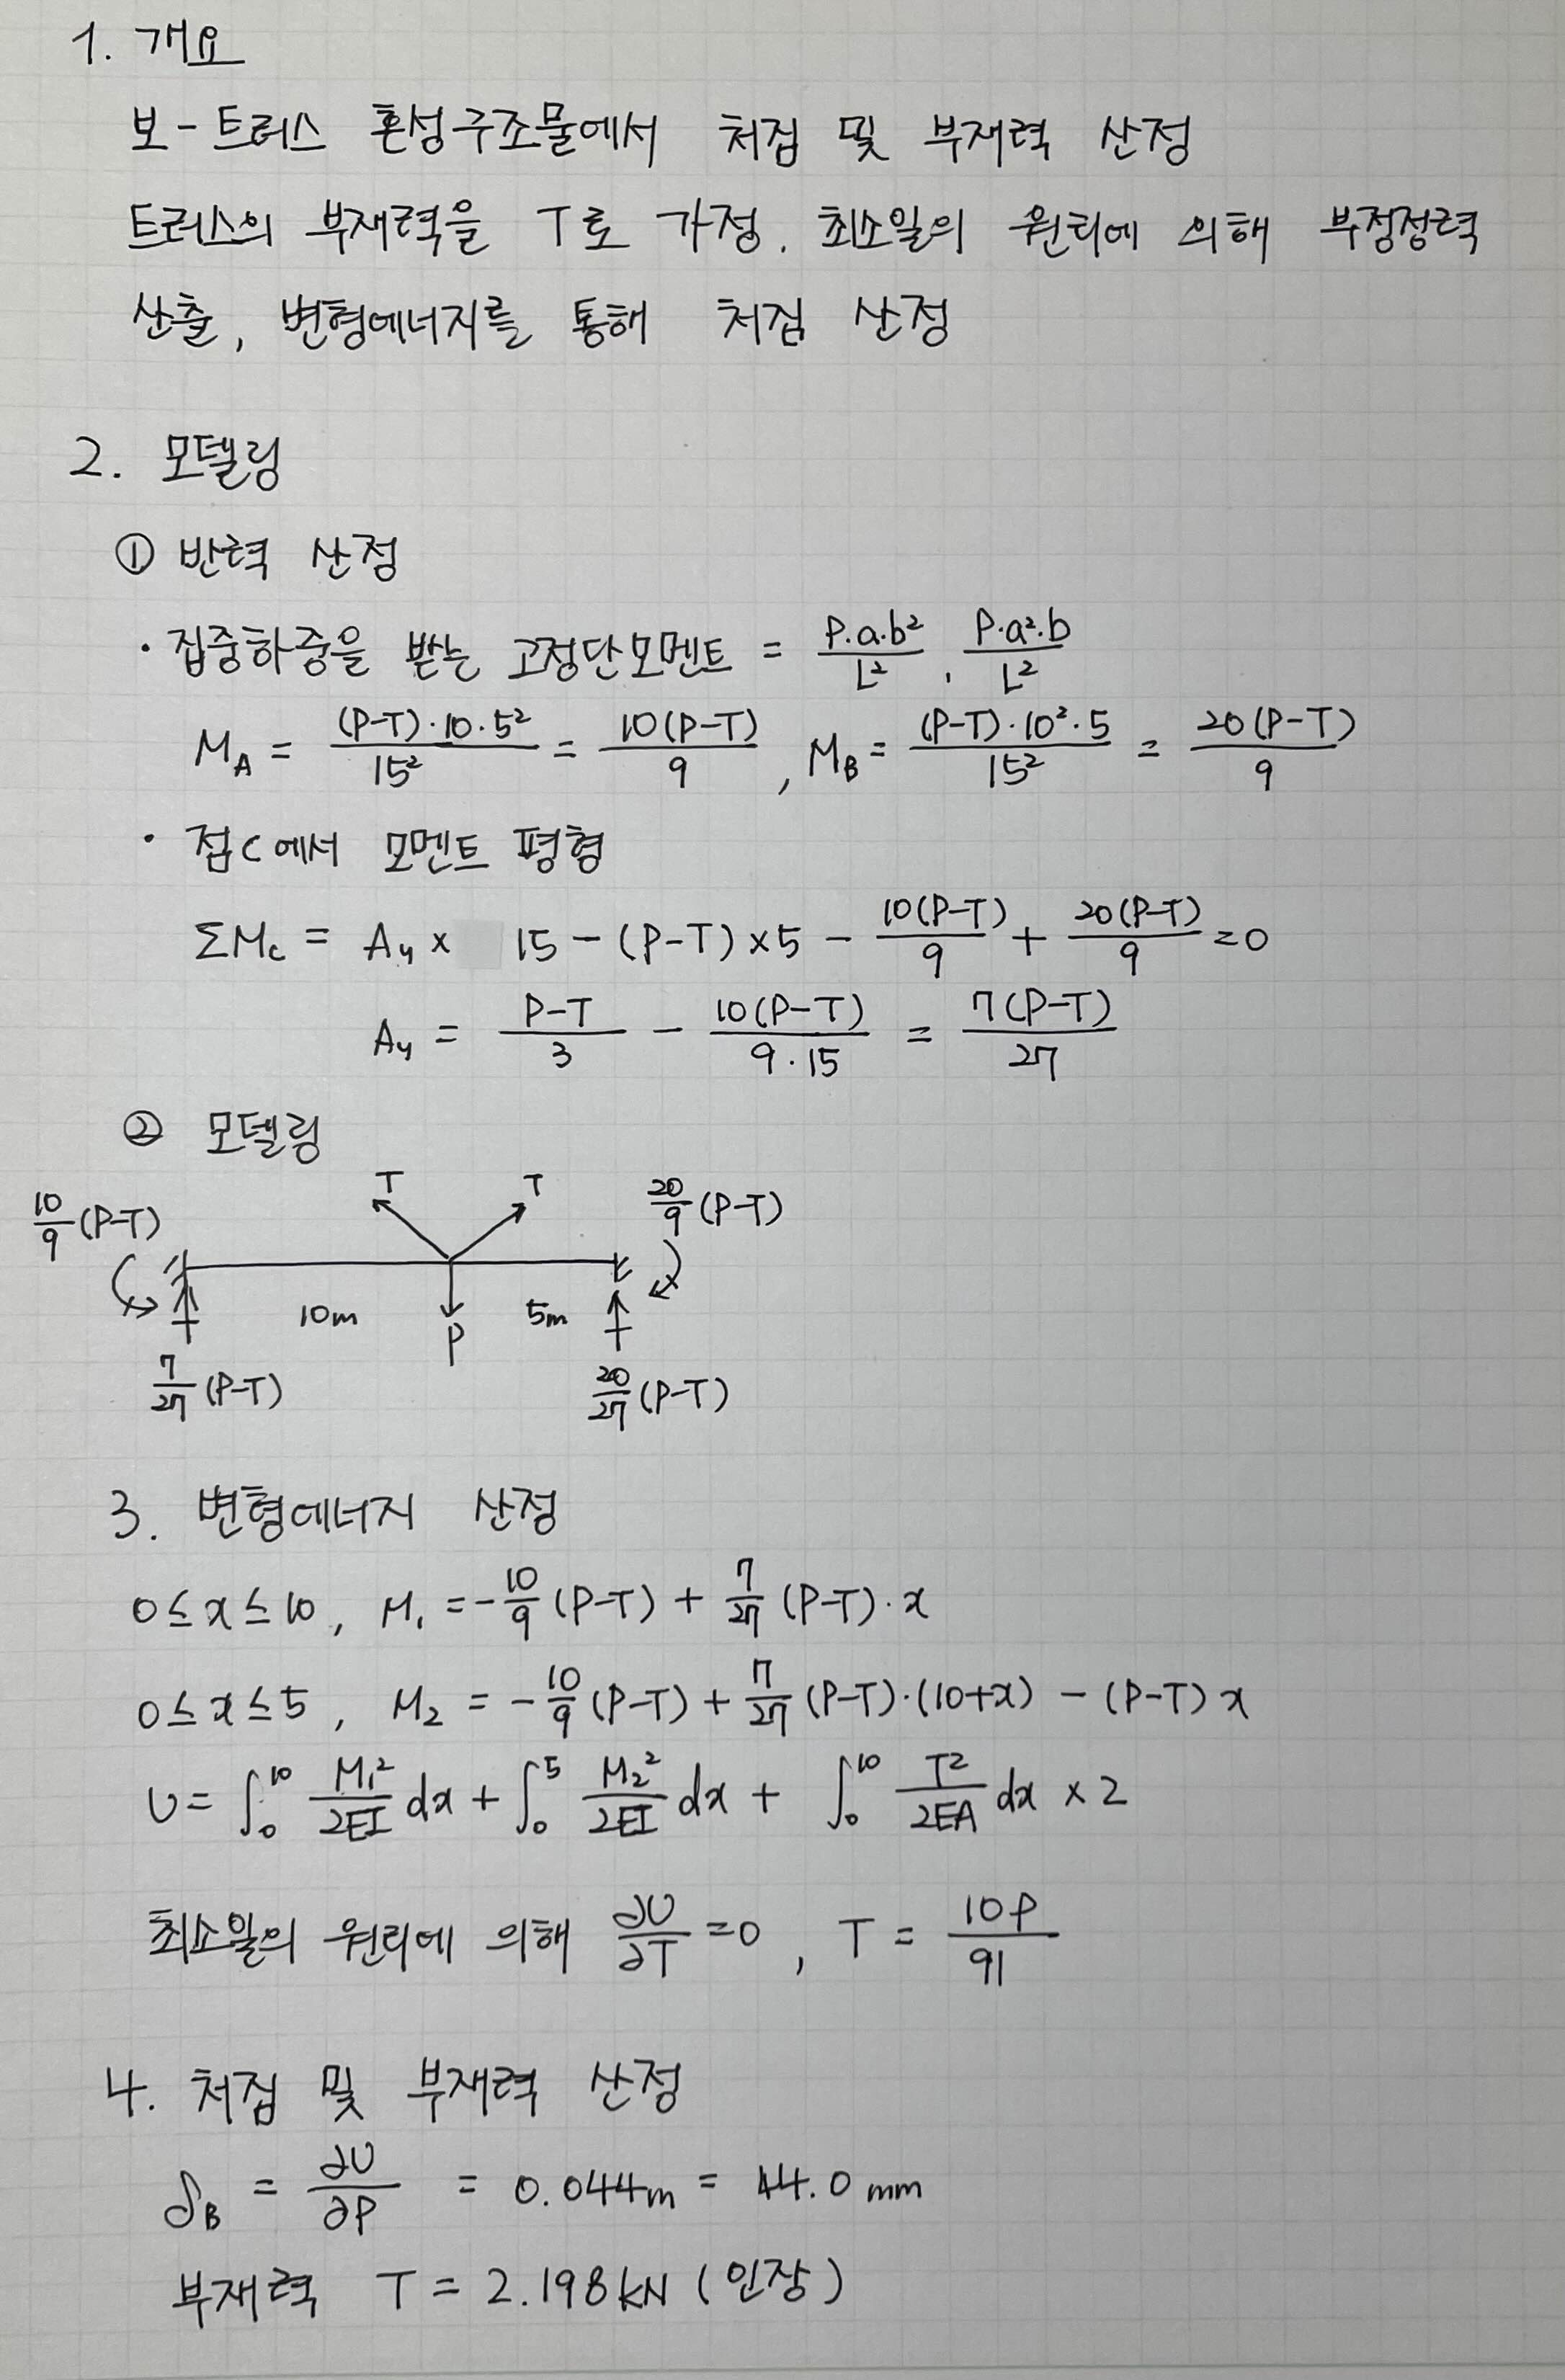 1. 개요
보-트러스 혼성구조물에서 처짐 및 부재력 산정
트러스의 부재력을 T로 가정. 최소일의 원리에 의해 부정정력
산출, 변형에너지를 통해 처짐 산정
2. 모델링
① 반력 산정
· 집중하중을 받는 고정단모멘트 = P·a·b²/L² , P·a²·b/L²
M_A = (P-T)·10·5²/15² = 10(P-T)/9 , M_B = (P-T)·10²·5/15² = 20(P-T)/9
· 점C에서 모멘트 평형
ΣM_c = A_y × 15 - (P-T)×5 - 10(P-T)/9 + 20(P-T)/9 = 0
A_y = P-T/3 - 10(P-T)/9·15 = 7(P-T)/27
② 모델링
T T
10/9 (P-T) 20/9 (P-T)
10m 5m
P
7/27 (P-T) 20/27 (P-T)
3. 변형에너지 산정
0≤x≤10, M₁ = -10/9 (P-T) + 7/27 (P-T)·x
0≤x≤5, M₂ = -10/9 (P-T) + 7/27 (P-T)·(10+x) - (P-T)x
U = ∫₀¹⁰ M₁²/2EI dx + ∫₀⁵ M₂²/2EI dx + ∫₀¹⁰ T²/2EA dx × 2
최소일의 원리에 의해 ∂U/∂T = 0, T = 10P/91
4. 처짐 및 부재력 산정
δ_B = ∂U/∂P = 0.044m = 44.0 mm
부재력 T = 2.198kN (인장)